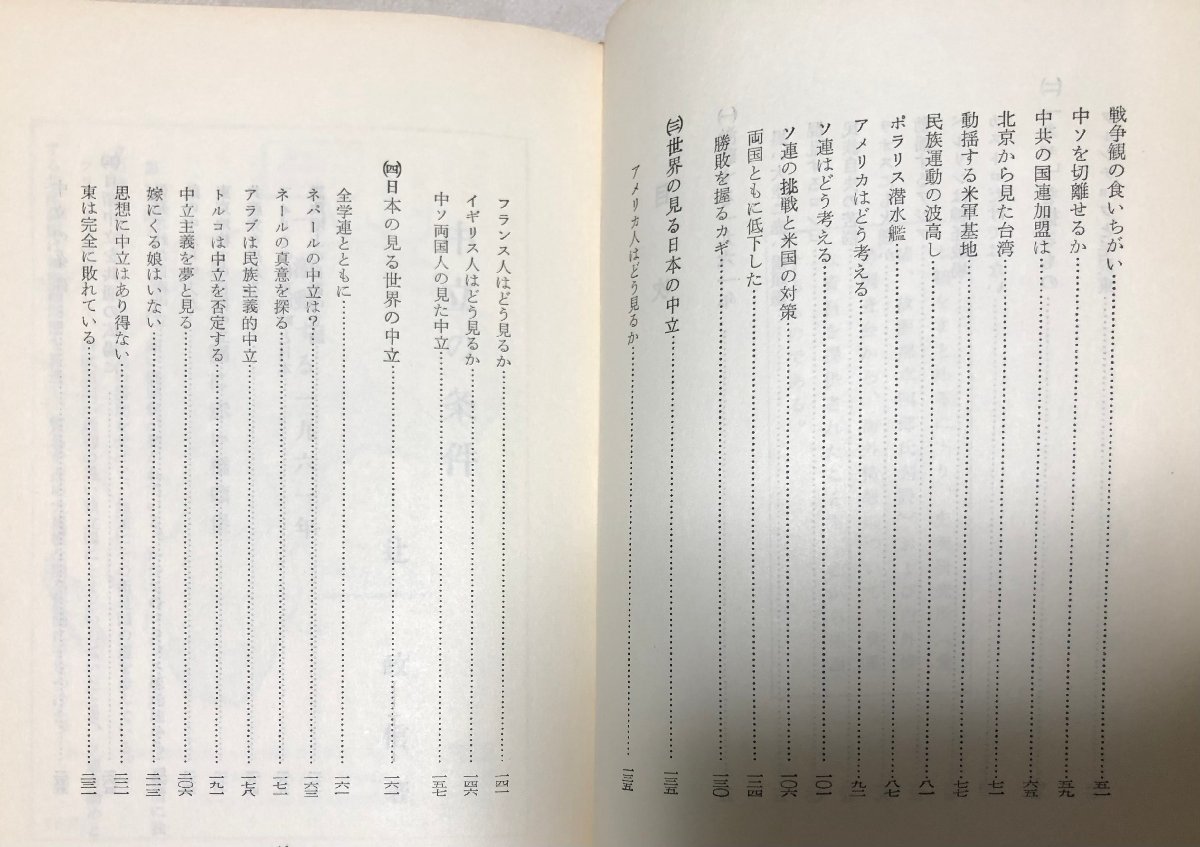 戦争観の食いちがい……五一
中ソを切離せるか……五九
中共の国連加盟は……六五
北京から見た台湾……七一
動揺する米軍基地……七七
民族運動の波高し……八一
ポラリス潜水艦……八七
アメリカはどう考える……九二
ソ連はどう考える……一〇一
ソ連の挑戦と米国の対策……一〇六
両国ともに低下した……一二四
勝敗を握るカギ……一三〇
㈢世界の見る日本の中立……一三五
アメリカ人はどう見るか……一三五
フランス人はどう見るか……一四一
イギリス人はどう見るか……一四六
中ソ両国人の見た中立……一五七
㈣日本の見る世界の中立……一六一
全学連とともに……一六一
ネパールの中立は?……一六三
ネールの真意を探る……一七一
アラブは民族主義的中立……一七八
トルコは中立を否定する……一九一
中立主義を夢と見る……二〇六
嫁にくる娘はいない……二一三
思想に中立はあり得ない……二二一
東は完全に敗れている……二三一